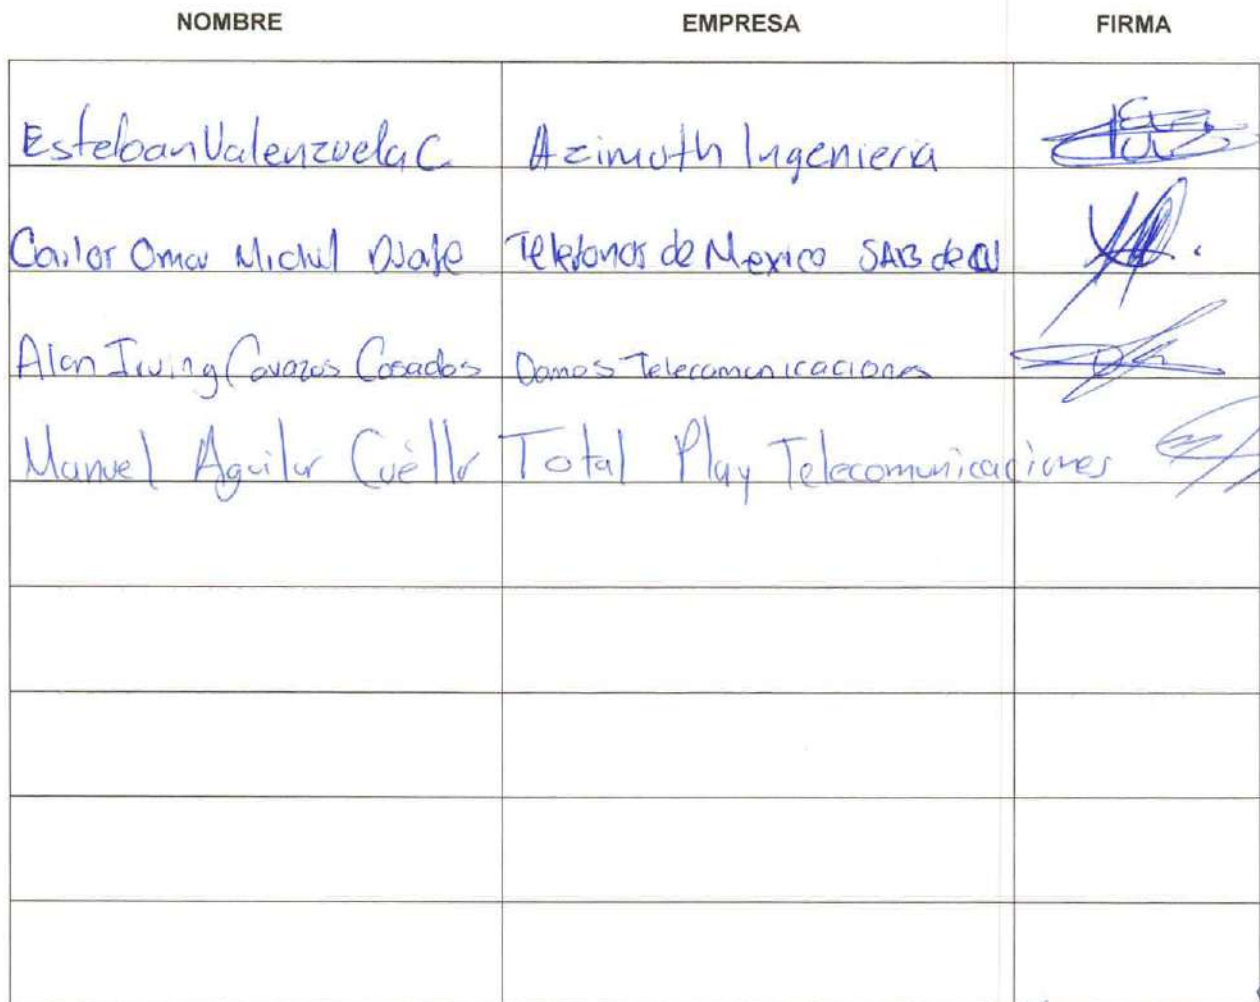 NOMBRE EMPRESA FIRMA
Esteban Valenzuela C. Azimuth Ingenieria
Carlos Omar Michel Telefonos de Mexico SAB de CV
Alan Irving Cavazos Casados Damos Telecomunicaciones
Manuel Aguilar Cuéllar Total Play Telecomunicaciones